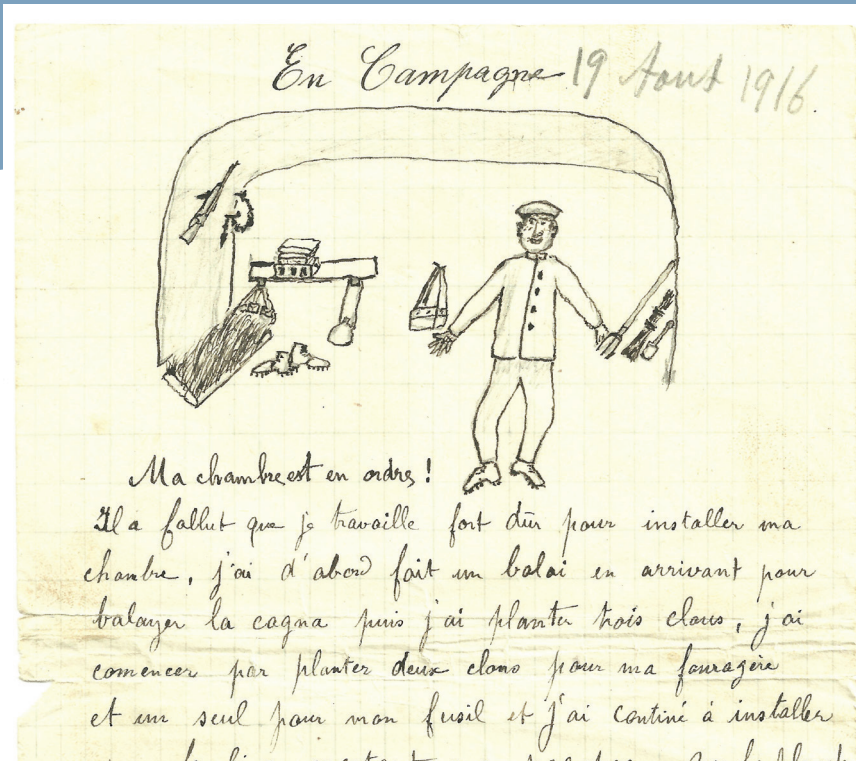 En Campagne 19 Aout 1916.
Ma chambre est en ordre !
Il a fallut que je travaille fort dûr pour installer ma
chambre, j'ai d'abord fait un balai en arrivant pour
balayer la cagna puis j'ai planter trois clous, j'ai
comencer par planter deux clous pour ma fouragère
et un seul pour mon fusil et j'ai continé à installer